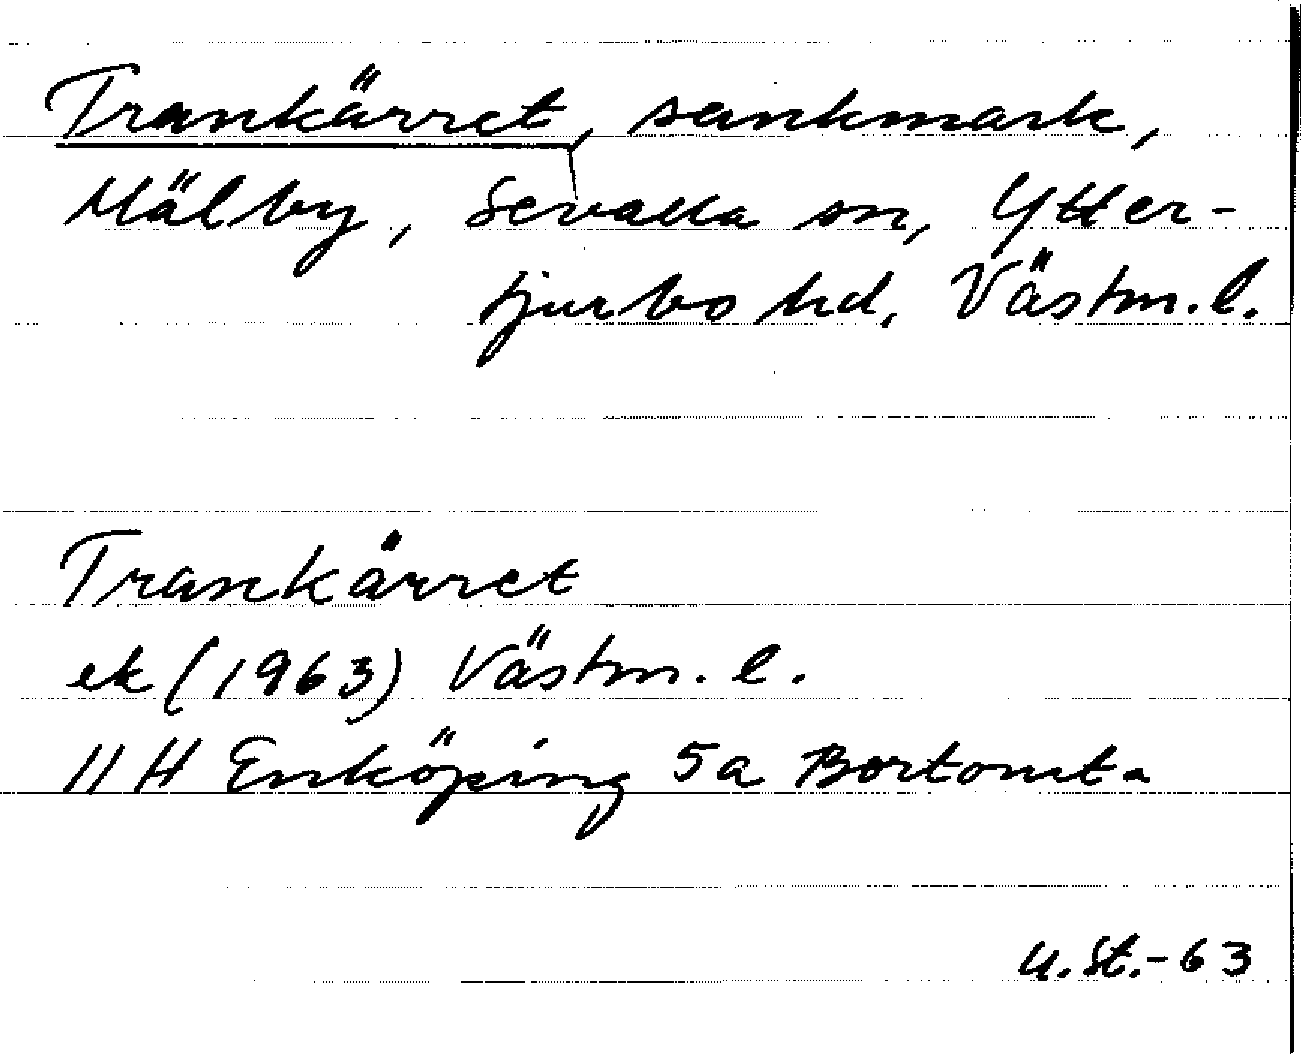 Trankärret, sankmark,
Mälby, Sevalla sn, Ytter-
tjurbo hd, Västm. l.
Trankärret
ek (1963) Västm. l.
11 H Enköping 5a Bortomt.
U. St. -63